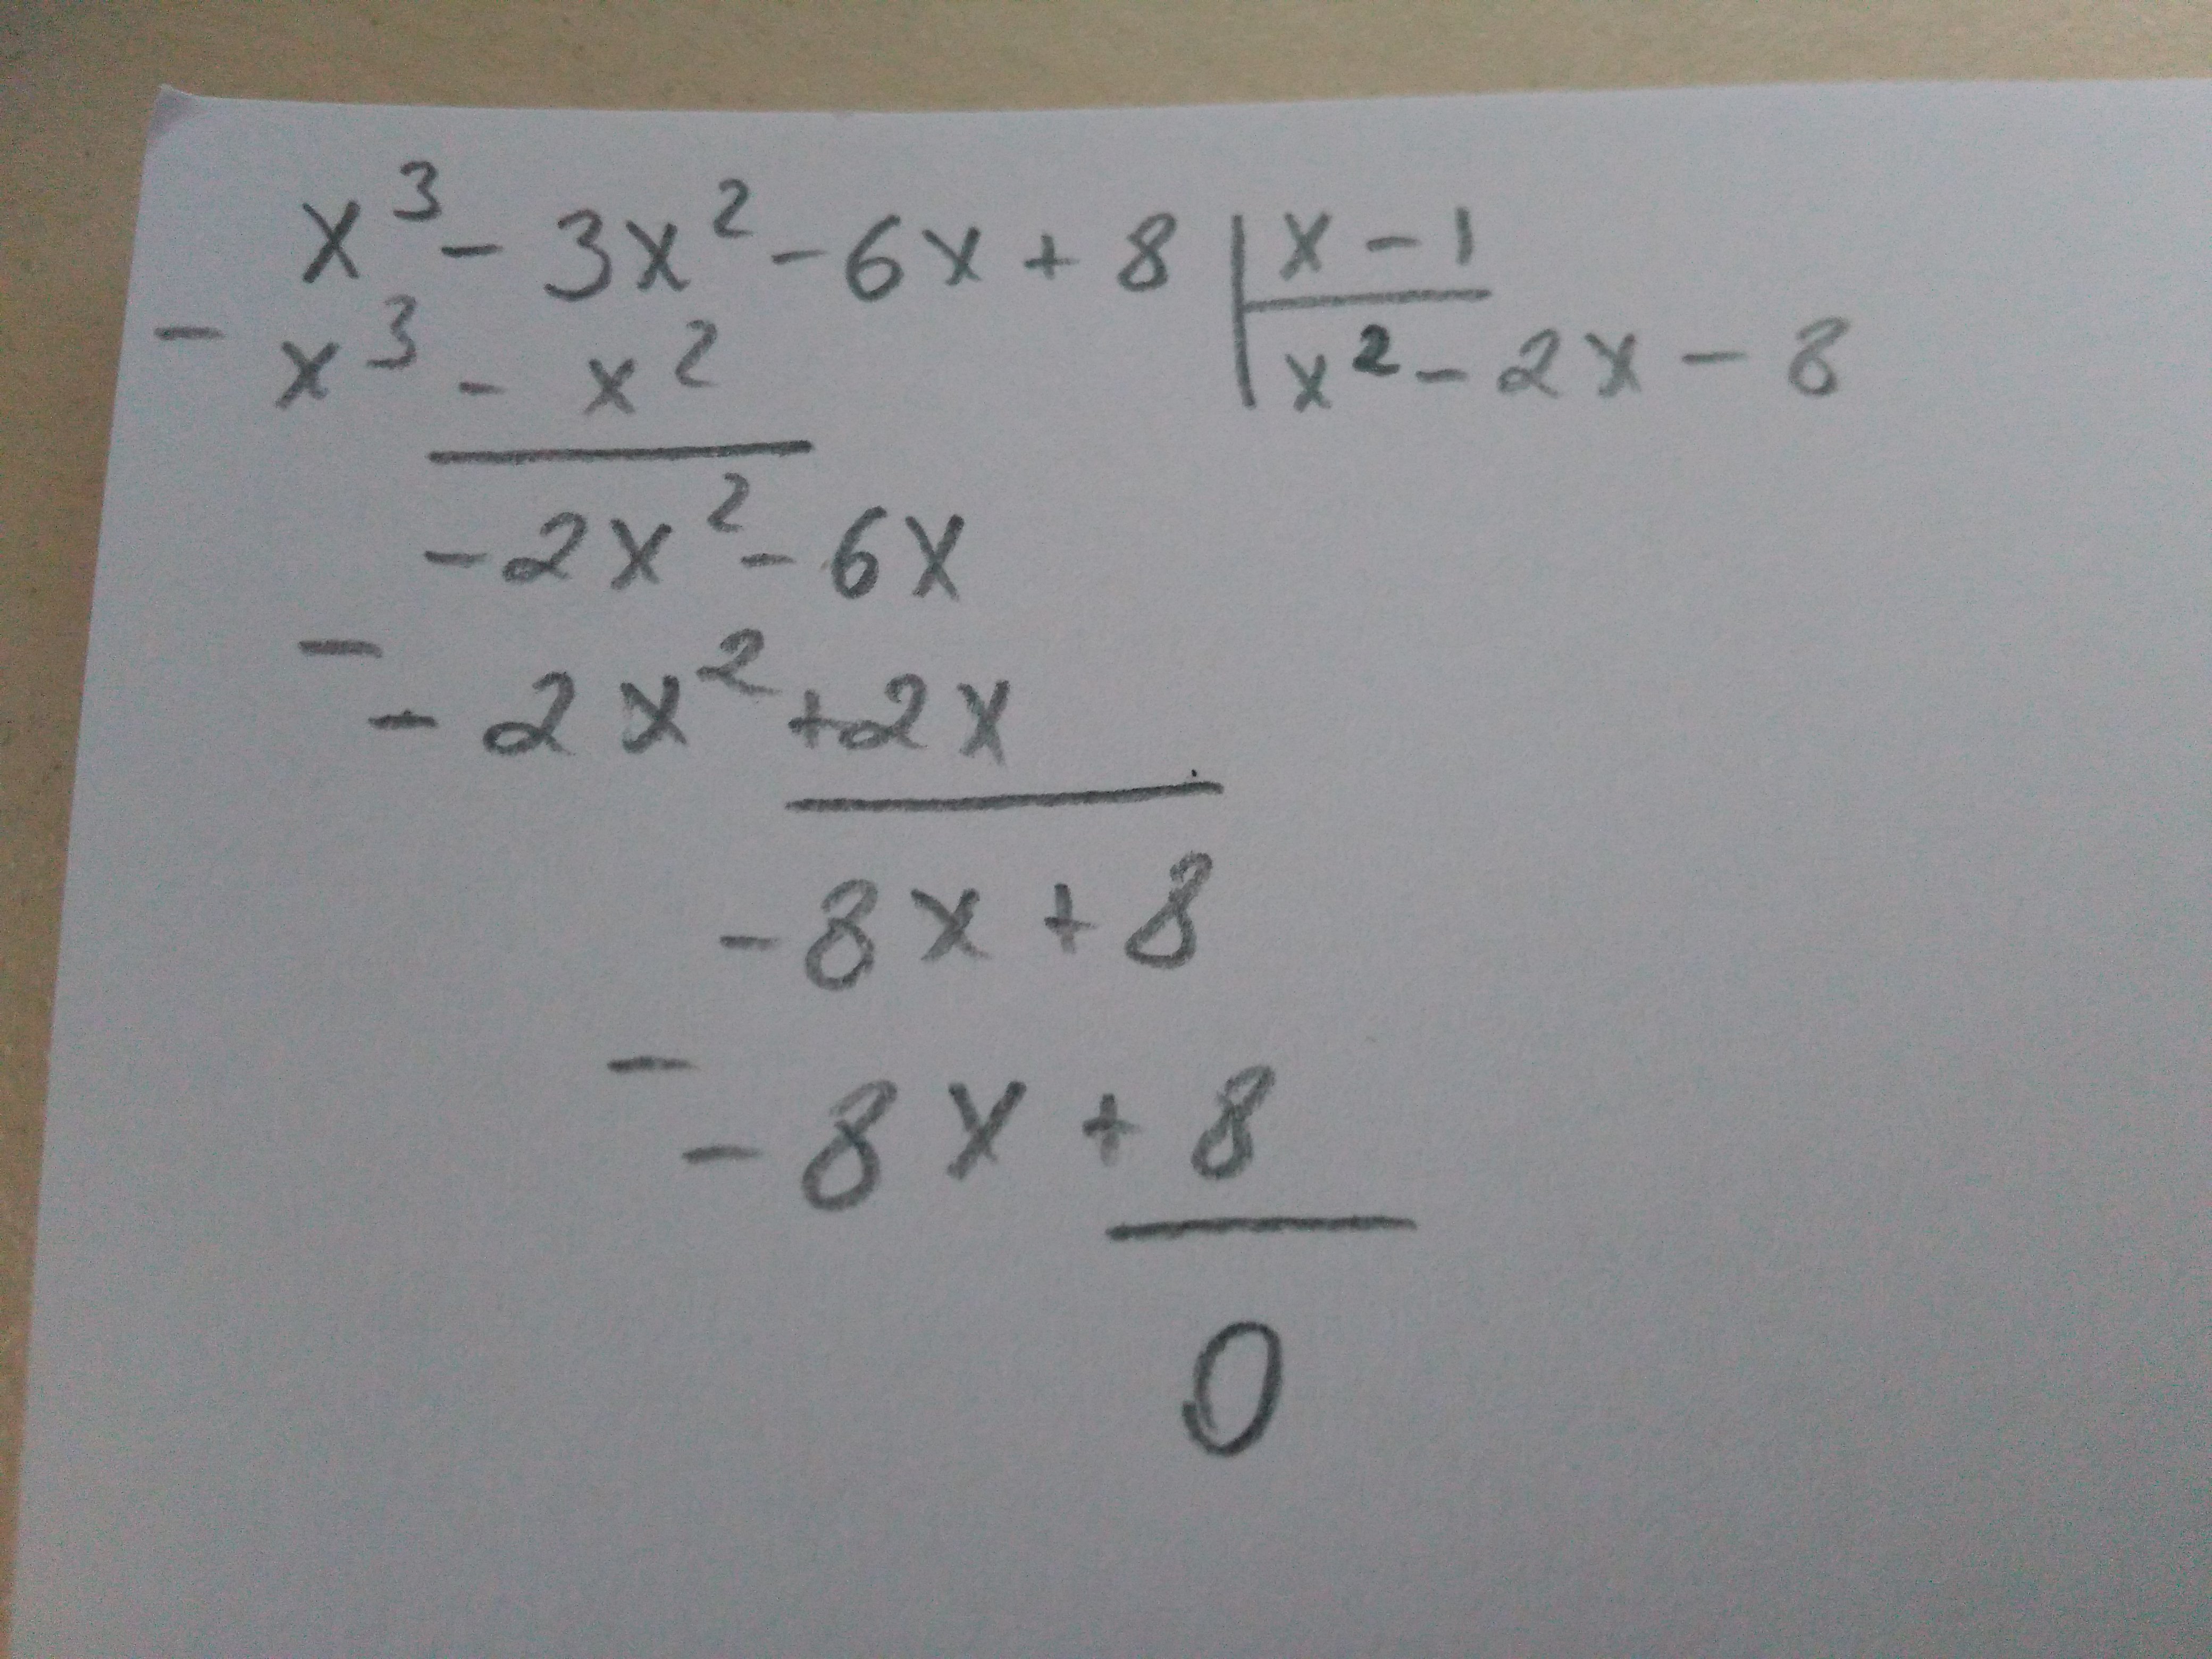 x³ - 3x² - 6x + 8 | x - 1
- x³ - x² | x² - 2x - 8
-2x² - 6x
- - 2x² + 2x
-8x + 8
- - 8x + 8
0